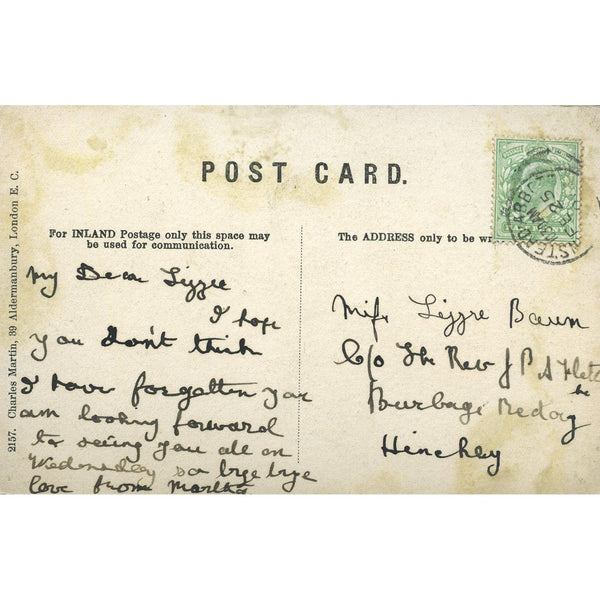 POST CARD.
For INLAND Postage only this space may
be used for communication.
The ADDRESS only to be
2157. Charles Martin, 39 Aldermanbury, London E. C.
My Dear Lizzie
I hope
you don't think
I have forgotten you
am looking forward
to seeing you all on
Wednesday so bye bye
love from Martha
Miss Lizzie
C/o The Rev J P A
Burbage Rectory
Hinckley